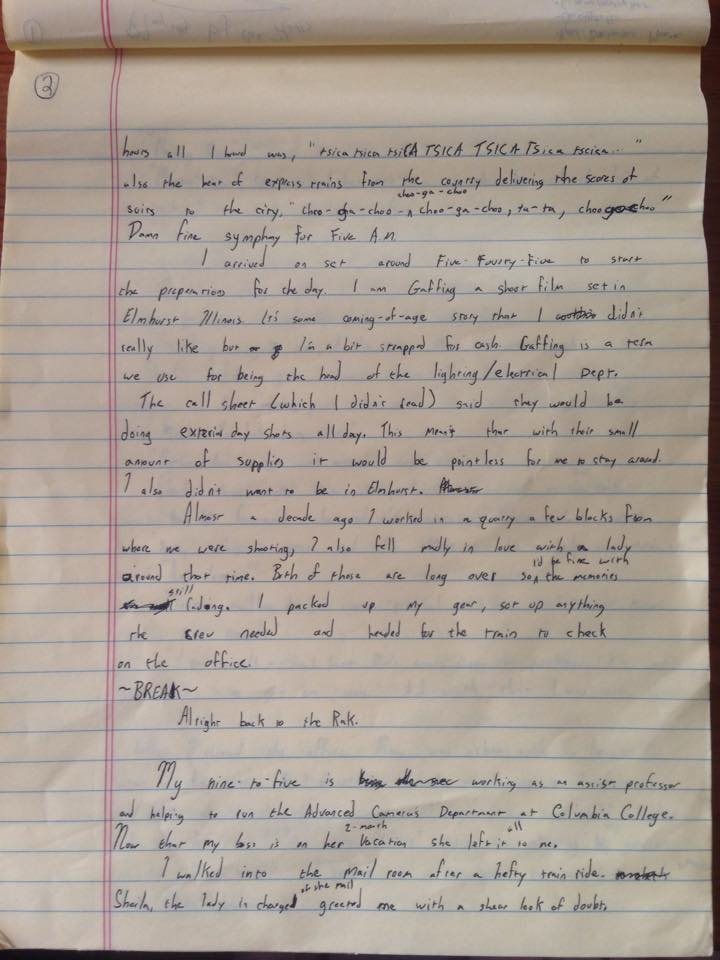 2
hours all I heard was, "tsica tsica tsiCA TSICA TSICA TSica tscica..."
also the beat of express trains from the country delivering the scores of
suits to the city, "choo-ga-choo-choo-ga-choo choo-ga-choo, ta-ta, choo choo"
Damn fine symphony for Five A.M.
I arrived on set around Five-Fourty-Five to start
the preperations for the day. I am Gaffing a short film set in
Elmhurst Illinois. It's some coming-of-age story that I didn't
really like but I'm a bit strapped for cash. Gaffing is a term
we use for being the head of the lighting/electrical Dept.
The call sheet (which I didn't read) said they would be
doing day shots all day. This means that with their small
amount of supplies it would be pointless for me to stay around.
I also didn't want to be in Elmhurst.
Almost a decade ago I worked in a quarry a few blocks from
where we were shooting, I also fell madly in love with a lady
around that time. Both of those are long over so I'd be fine with the memories
still fading. I packed up my gear, set up anything
the crew needed and headed for the train to check
on the office.
~BREAK~
Alright back to the
My nine-to-five is working as an assist professor
and helping to run the Advanced Camera's Department at Columbia College.
Now that my boss is on her 2-month vacation she left it all to me.
I walked into the mail room after a hefty train ride.
Sheila, the lady in charged of the mail greeted me with a shear look of doubt.